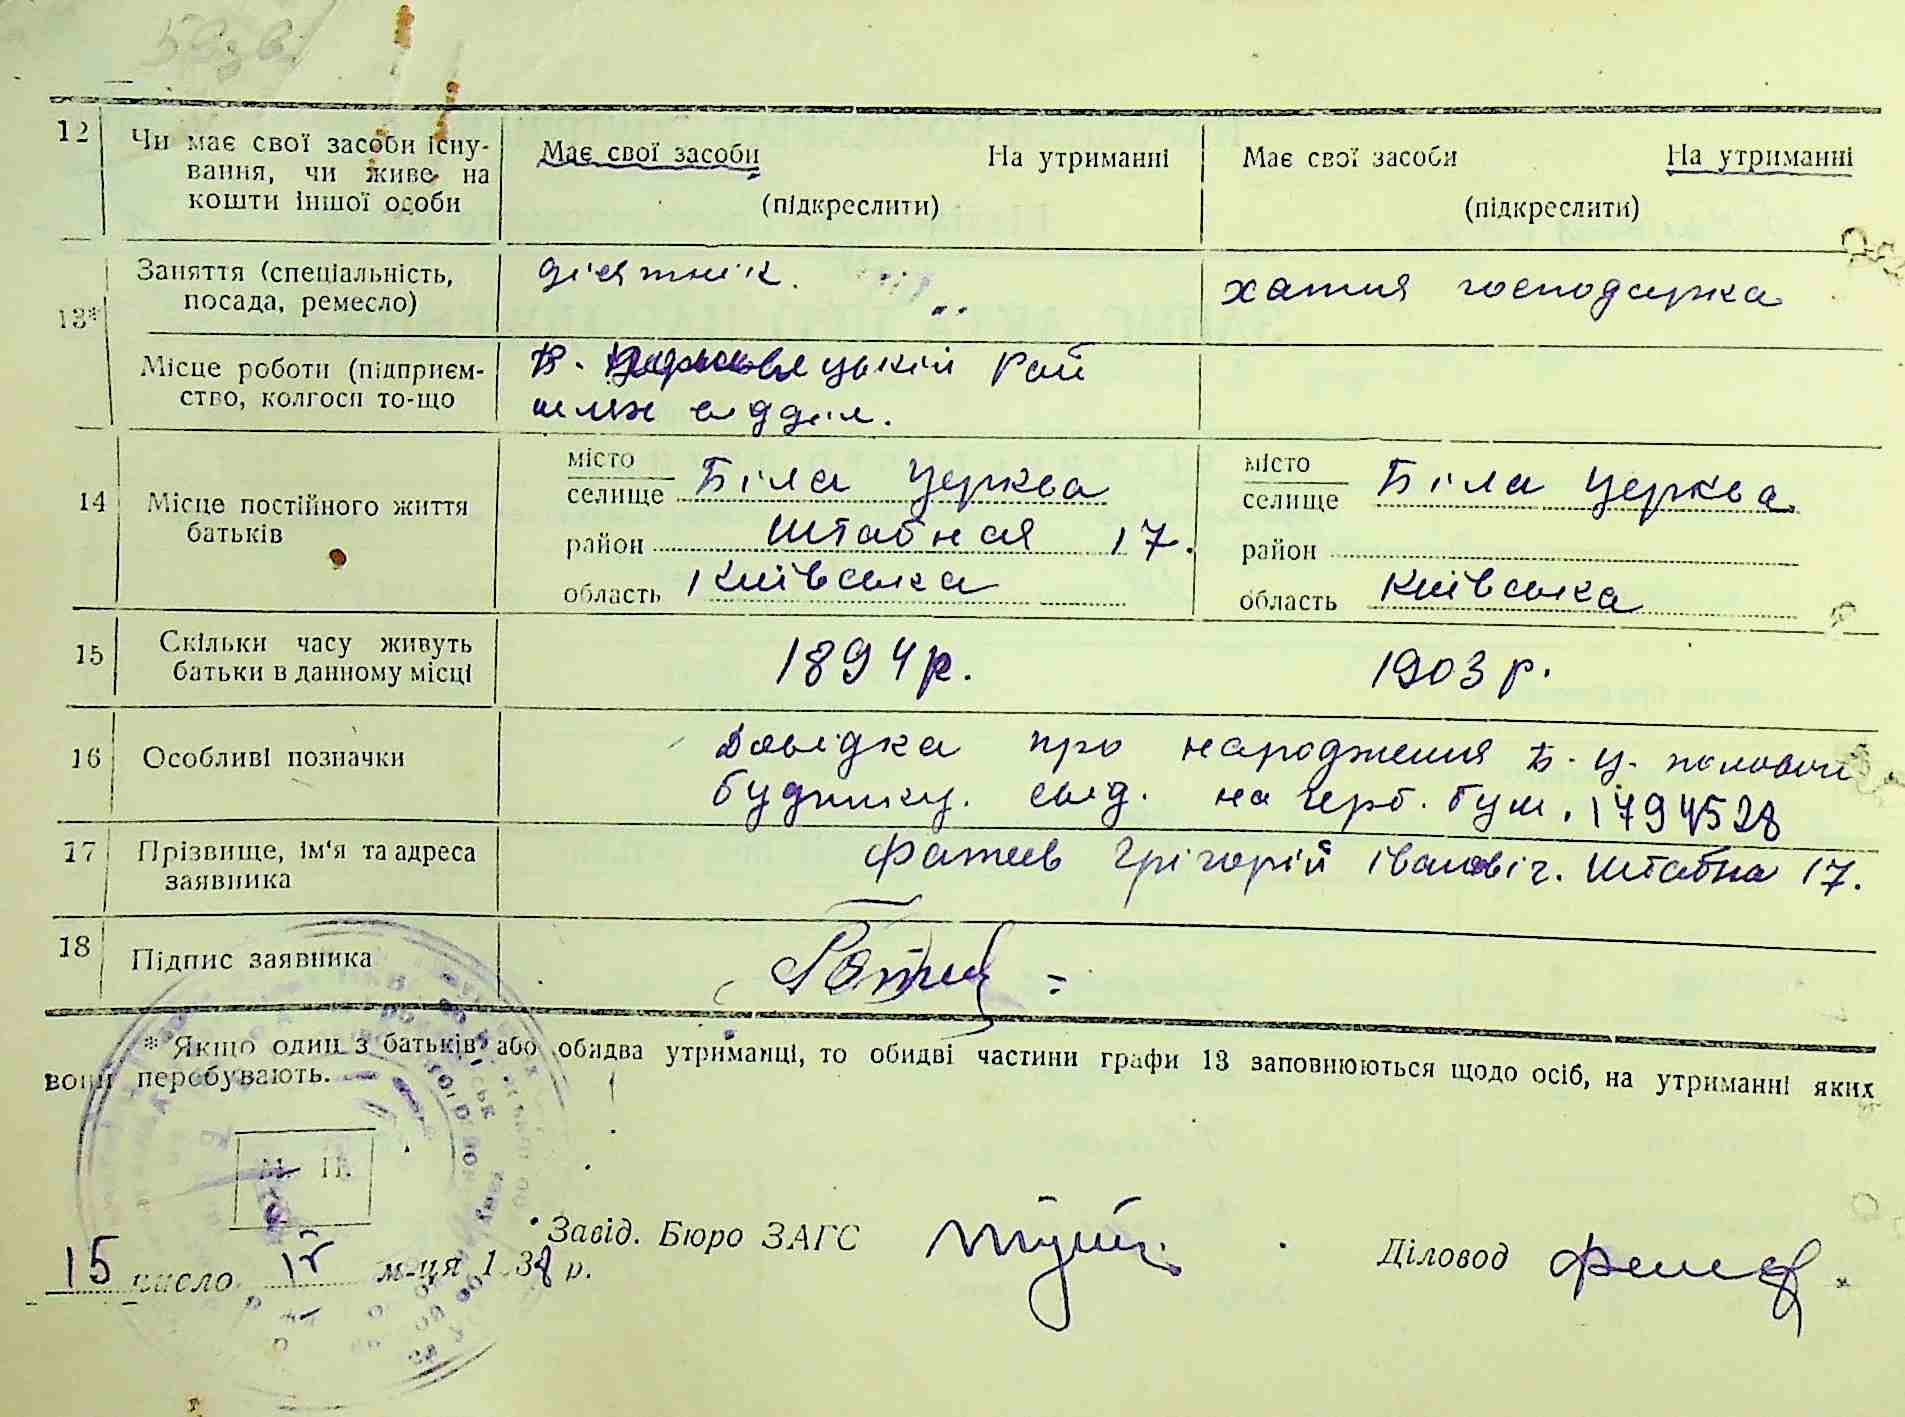 12 Чи має свої засоби існу-
вання, чи живе на
кошти іншої особи
Має свої засоби На утриманні
(підкреслити)
Має свої засоби На утриманні
(підкреслити)
13* Заняття (спеціальність,
посада, ремесло)
хатня господарка
Місце роботи (підприєм-
ство, колгосп то-що
Рай
відділ.
14 Місце постійного життя
батьків
місто
селище Біла Церква
район Штабная 17.
область Київська
місто
селище Біла Церква
район
область Київська
15 Скільки часу живуть
батьки в данному місці
1894 р.
1903 р.
16 Особливі позначки
Довідка про народження Б. Ц. полового
будинку. свід. на герб. бум. 1794528
17 Прізвище, ім'я та адреса
заявника
Фатеев Грігорій Івановіч. Штабна 17.
18 Підпис заявника
* Якщо один з батьків або обидва утриманці, то обидві частини графи 13 заповнюються щодо осіб, на утриманні яких
вони перебувають.
М. П.
Завід. Бюро ЗАГС
Діловод
15 число IV м-ця 1938 р.